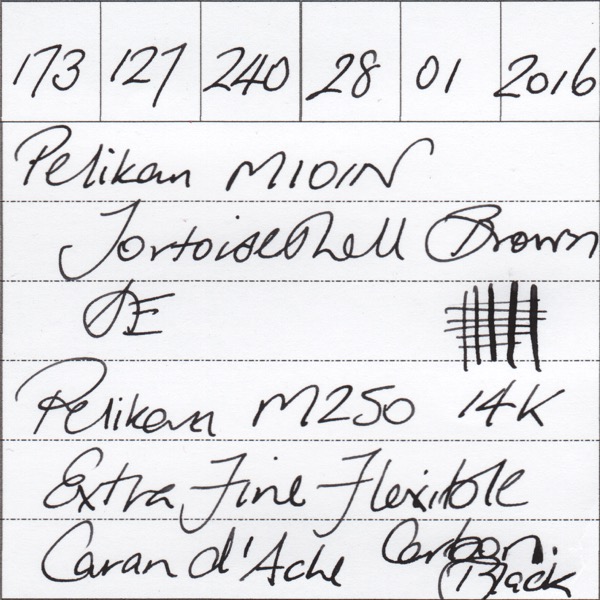 173 127 240 28 01 2016
Pelikan M101N
Tortoiseshell Brown
SE
Pelikan M250 14K
Extra Fine Flexible
Caran d'Ache Carbon.
Black